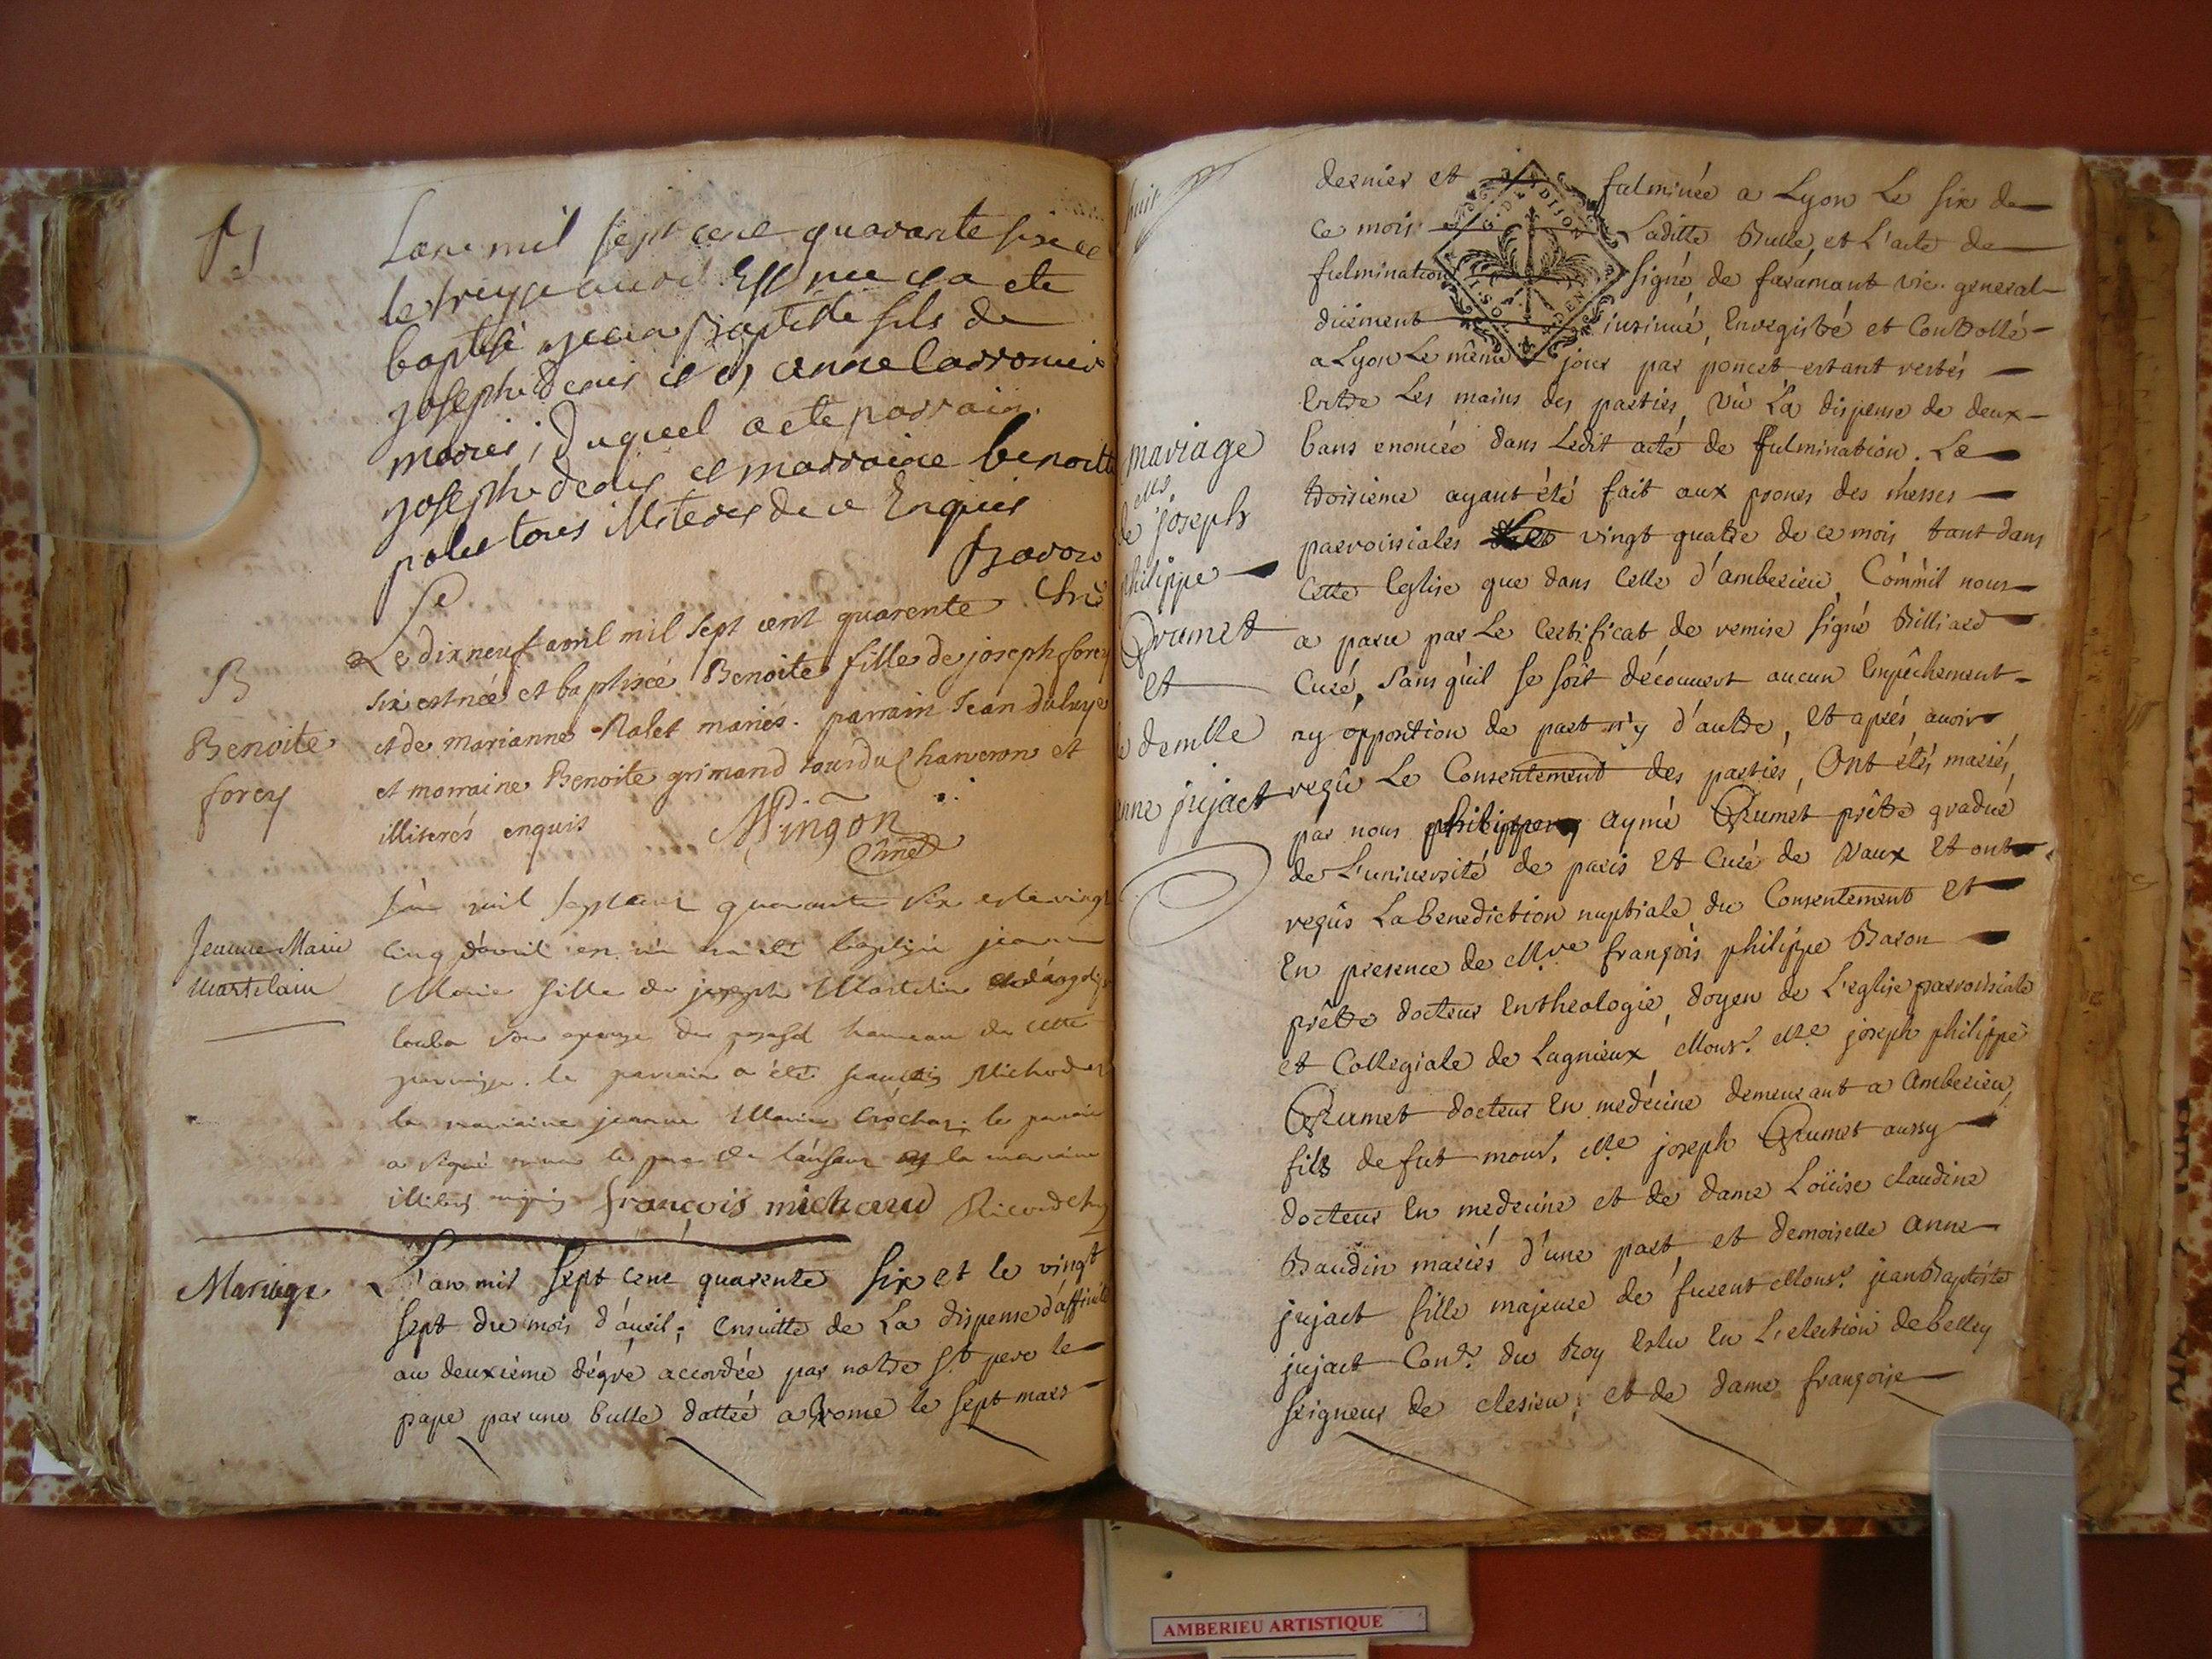 B
Lan mil sept cent quarante six et
le treize avril Est nee et a ete
baptisé jean Baptiste fils de
joseph denis et d anne Carronier
mariés, duquel a ete parrain
joseph denis et marraine benoite
tous illiteres de ce Enquis
Le dixneuf avril mil sept cent quarente
six est née et baptisée Benoite fille de joseph forey
et de marianne Ralet mariés. parrain Jean
et marraine Benoite grimand tous du Chanveron et
illiterés enquis
B
Benoite
forey
Jeanne Marie
Martelain
L'an mil sept cent quarante six et le vingt
cinq d'avril est née et a été baptisée jeanne
Marie fille de joseph Martelin et
son epouse du hameau de cette
parroisse. le parrain a été francois Michod et
la marraine jeanne Marie le parrain
a signé non le pere de l'enfant ny la marraine
illiterés enquis françois michaud
Mariage
L'an mil sept cent quarente six et le vingt
sept du mois d'avril; Ensuitte de La dispense d'affinité
au deuxième dégré accordée par notre St pere le
pape par une bulle dattée a Rome le sept mars
dernier et fulminée a Lyon Le six de
ce mois Laditte Bulle, et L'acte de
fulmination signé, de faramant vic. general
düement insinué, Enregistré et Controllé
a Lyon Le même jour par poncet estant restés
Entre Les mains des parties, Vü La dispense de deux
bans enoncée dans Ledit acte de fulmination. Le
troisieme ayant été fait aux prones des messes
parroissiales vingt quatre de ce mois tant dans
Cette Eglise que dans Celle d'amberieu, Comm'il nous
a paru par Le Certificat de remise signé Billiard
Curé, sans qu'il se soit découvert aucun Empêchement
ny opposition de part n'y d'autre, Et aprés avoir
reçû Le Consentement des parties, Ont étés mariés,
par nous aymé Grumet prêtre gradué
de L'université de paris Et Curé de Vaux Et ont
reçûs La benediction nuptiale du Consentement Et
En presence de Mre françois philippe Baron
prêtre docteur En theologie, doyen de L'eglise parroissiale
et Collegiale de Lagnieux Monsr. Me joseph philippe
Grumet docteur En medécine demeurant a Amberieu,
fils de fut monsr. Me joseph Grumet aussy
docteur En medecine et de dame Loüise claudine
Baudin mariés d'une part, et demoiselle anne
jujact fille majeure de furent Monsr. jean Baptiste
jujact Conser. du Roy Eslu En L'election de belley
seigneur de et de dame françoise
huit
mariage
de joseph
philippe
Grumet
et
demlle
anne jujact
AMBERIEU ARTISTIQUE